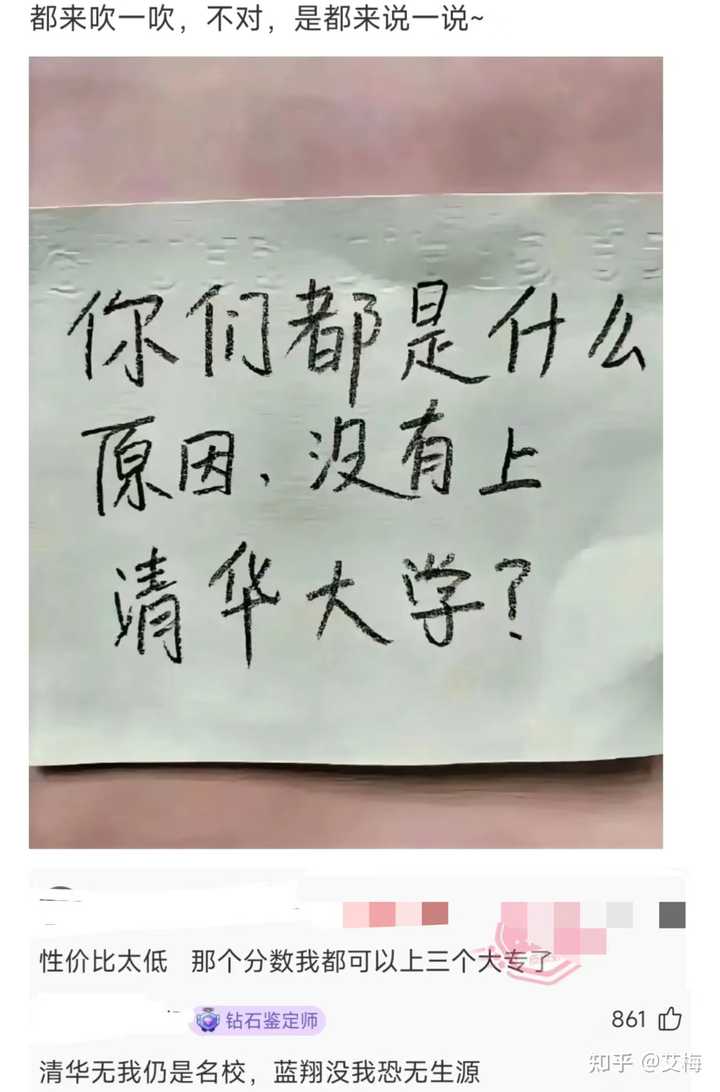 都来吹一吹，不对，是都来说一说~
你们都是什么
原因、没有上
清华大学?
性价比太低 那个分数我都可以上三个大专了
钻石鉴定师
861
清华无我仍是名校，蓝翔没我恐无生源
知乎 @艾梅